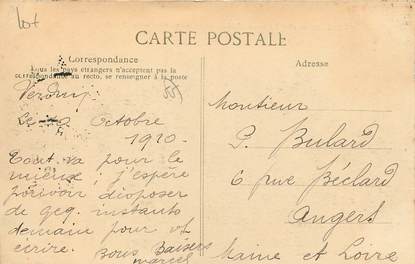 Lot
CARTE POSTALE
Correspondance
Tous les pays étrangers n'acceptent pas la
correspondance au recto, se renseigner à la poste
Adresse
Octobre
1910.
Tout va pour le
mieux; j'espère
pouvoir disposer
de qcq. instants
demain pour vs
écrire.
bons Baisers
Marcel
Monsieur
P. Bulard
6 rue Béclard
Angers
Maine et Loire